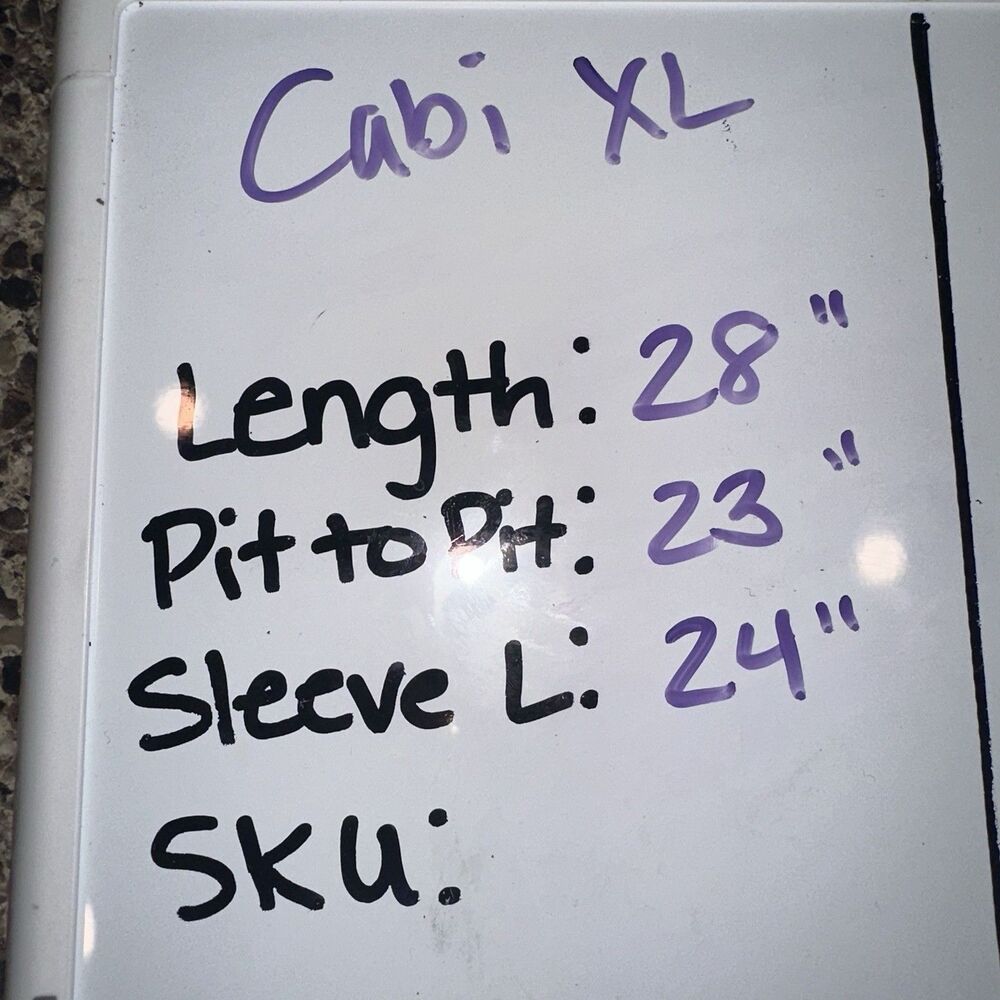 Cabi XL
Length: 28"
Pit to Pit: 23"
Sleeve L: 24"
SKU: